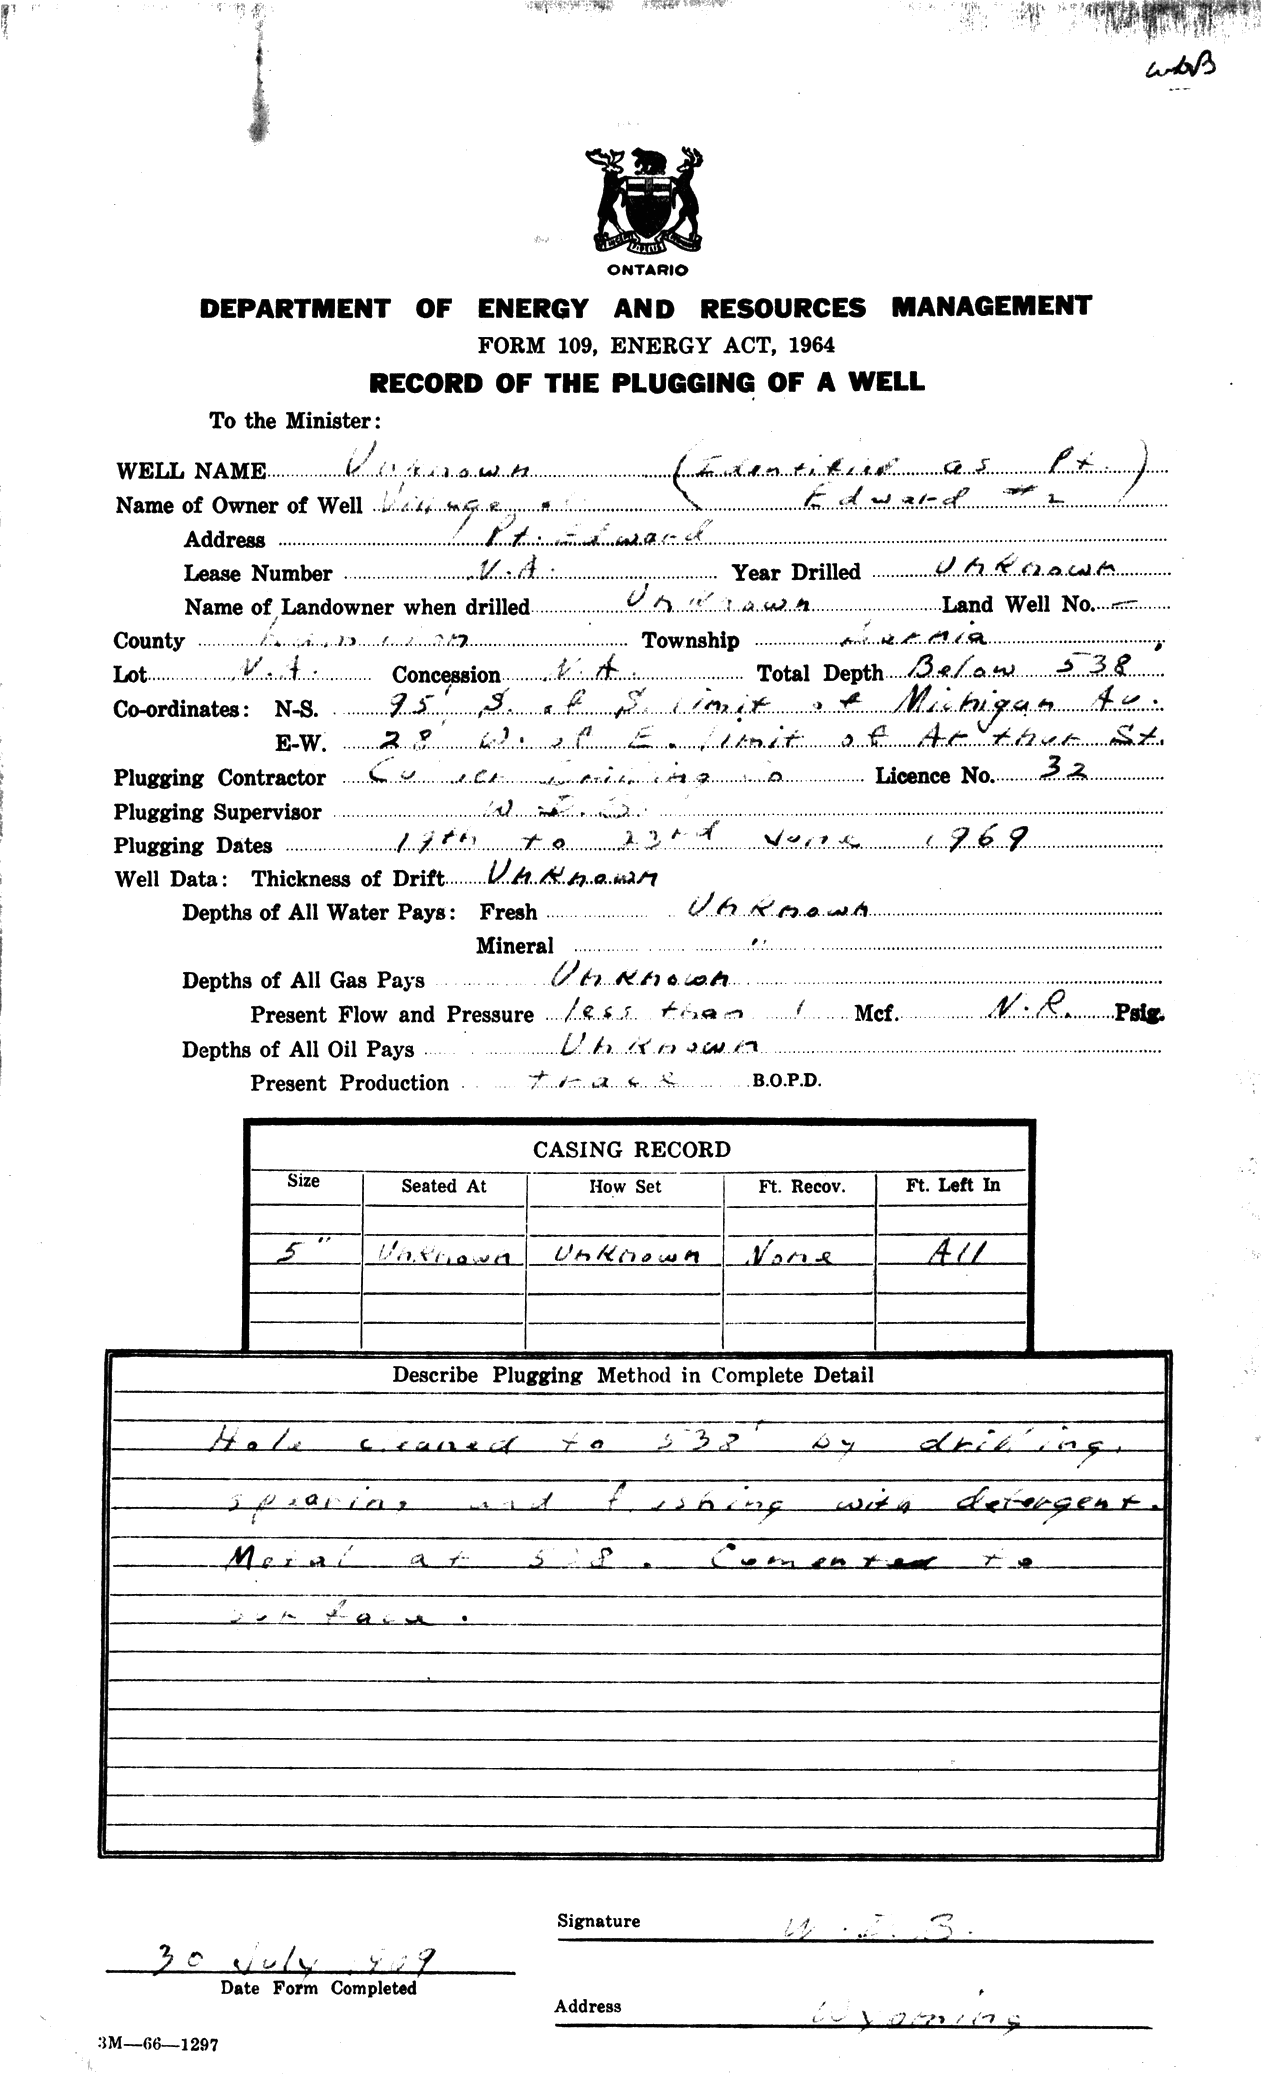 ONTARIO
DEPARTMENT OF ENERGY AND RESOURCES MANAGEMENT
FORM 109, ENERGY ACT, 1964
RECORD OF THE PLUGGING OF A WELL
To the Minister:
WELL NAME Unknown (Identified as Pt.
Name of Owner of Well Village of Edward #2)
Address Pt. Edward
Lease Number N.A. Year Drilled Unknown
Name of Landowner when drilled Unknown Land Well No. —
County Lambton Township Sarnia
Lot N.A. Concession N.A. Total Depth Below 538
Co-ordinates: N-S. 95' S. of S. limit of Michigan Av.
E-W. 28' W. of E. limit of Arthur St.
Plugging Contractor Drilling Co Licence No. 32
Plugging Supervisor W.
Plugging Dates 19th to 23rd June 1969
Well Data: Thickness of Drift Unknown
Depths of All Water Pays: Fresh Unknown
Mineral "
Depths of All Gas Pays Unknown
Present Flow and Pressure less than 1 Mcf. N.R. Psig.
Depths of All Oil Pays Unknown
Present Production trace B.O.P.D.
CASING RECORD
Size Seated At How Set Ft. Recov. Ft. Left In
5" Unknown Unknown None All
Describe Plugging Method in Complete Detail
Hole cleaned to 538' by drilling,
spearing and fishing with detergent.
Metal at 538. Cemented to
surface.
Signature W. B.
30 July 1969
Date Form Completed
Address Wyoming
3M—66—1297